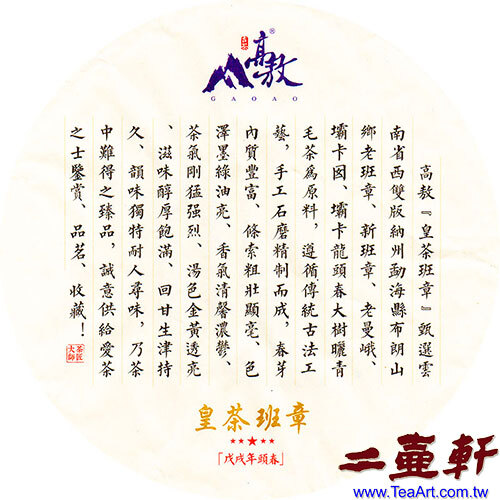 高敖®
GAOAO
高敖『皇茶班章』甄選雲
南省西雙版納州勐海縣布朗山
鄉老班章、新班章、老曼峨、
壩卡囡、壩卡龍頭春大樹曬青
毛茶爲原料，遵循傳統古法工
藝，手工石磨精制而成，春芽
內質豐富、條索粗壯顯毫、色
澤墨綠油亮、香氣清馨濃鬱、
茶氣剛猛强烈、湯色金黃透亮
、滋味醇厚飽滿、回甘生津持
久、韻味獨特耐人尋味，乃茶
中難得之臻品，誠意供給愛茶
之士鑒賞、品茗、收藏！
茶匠
大師
皇茶班章
「戊戌年頭春」
二壺軒
www.TeaArt.com.tw